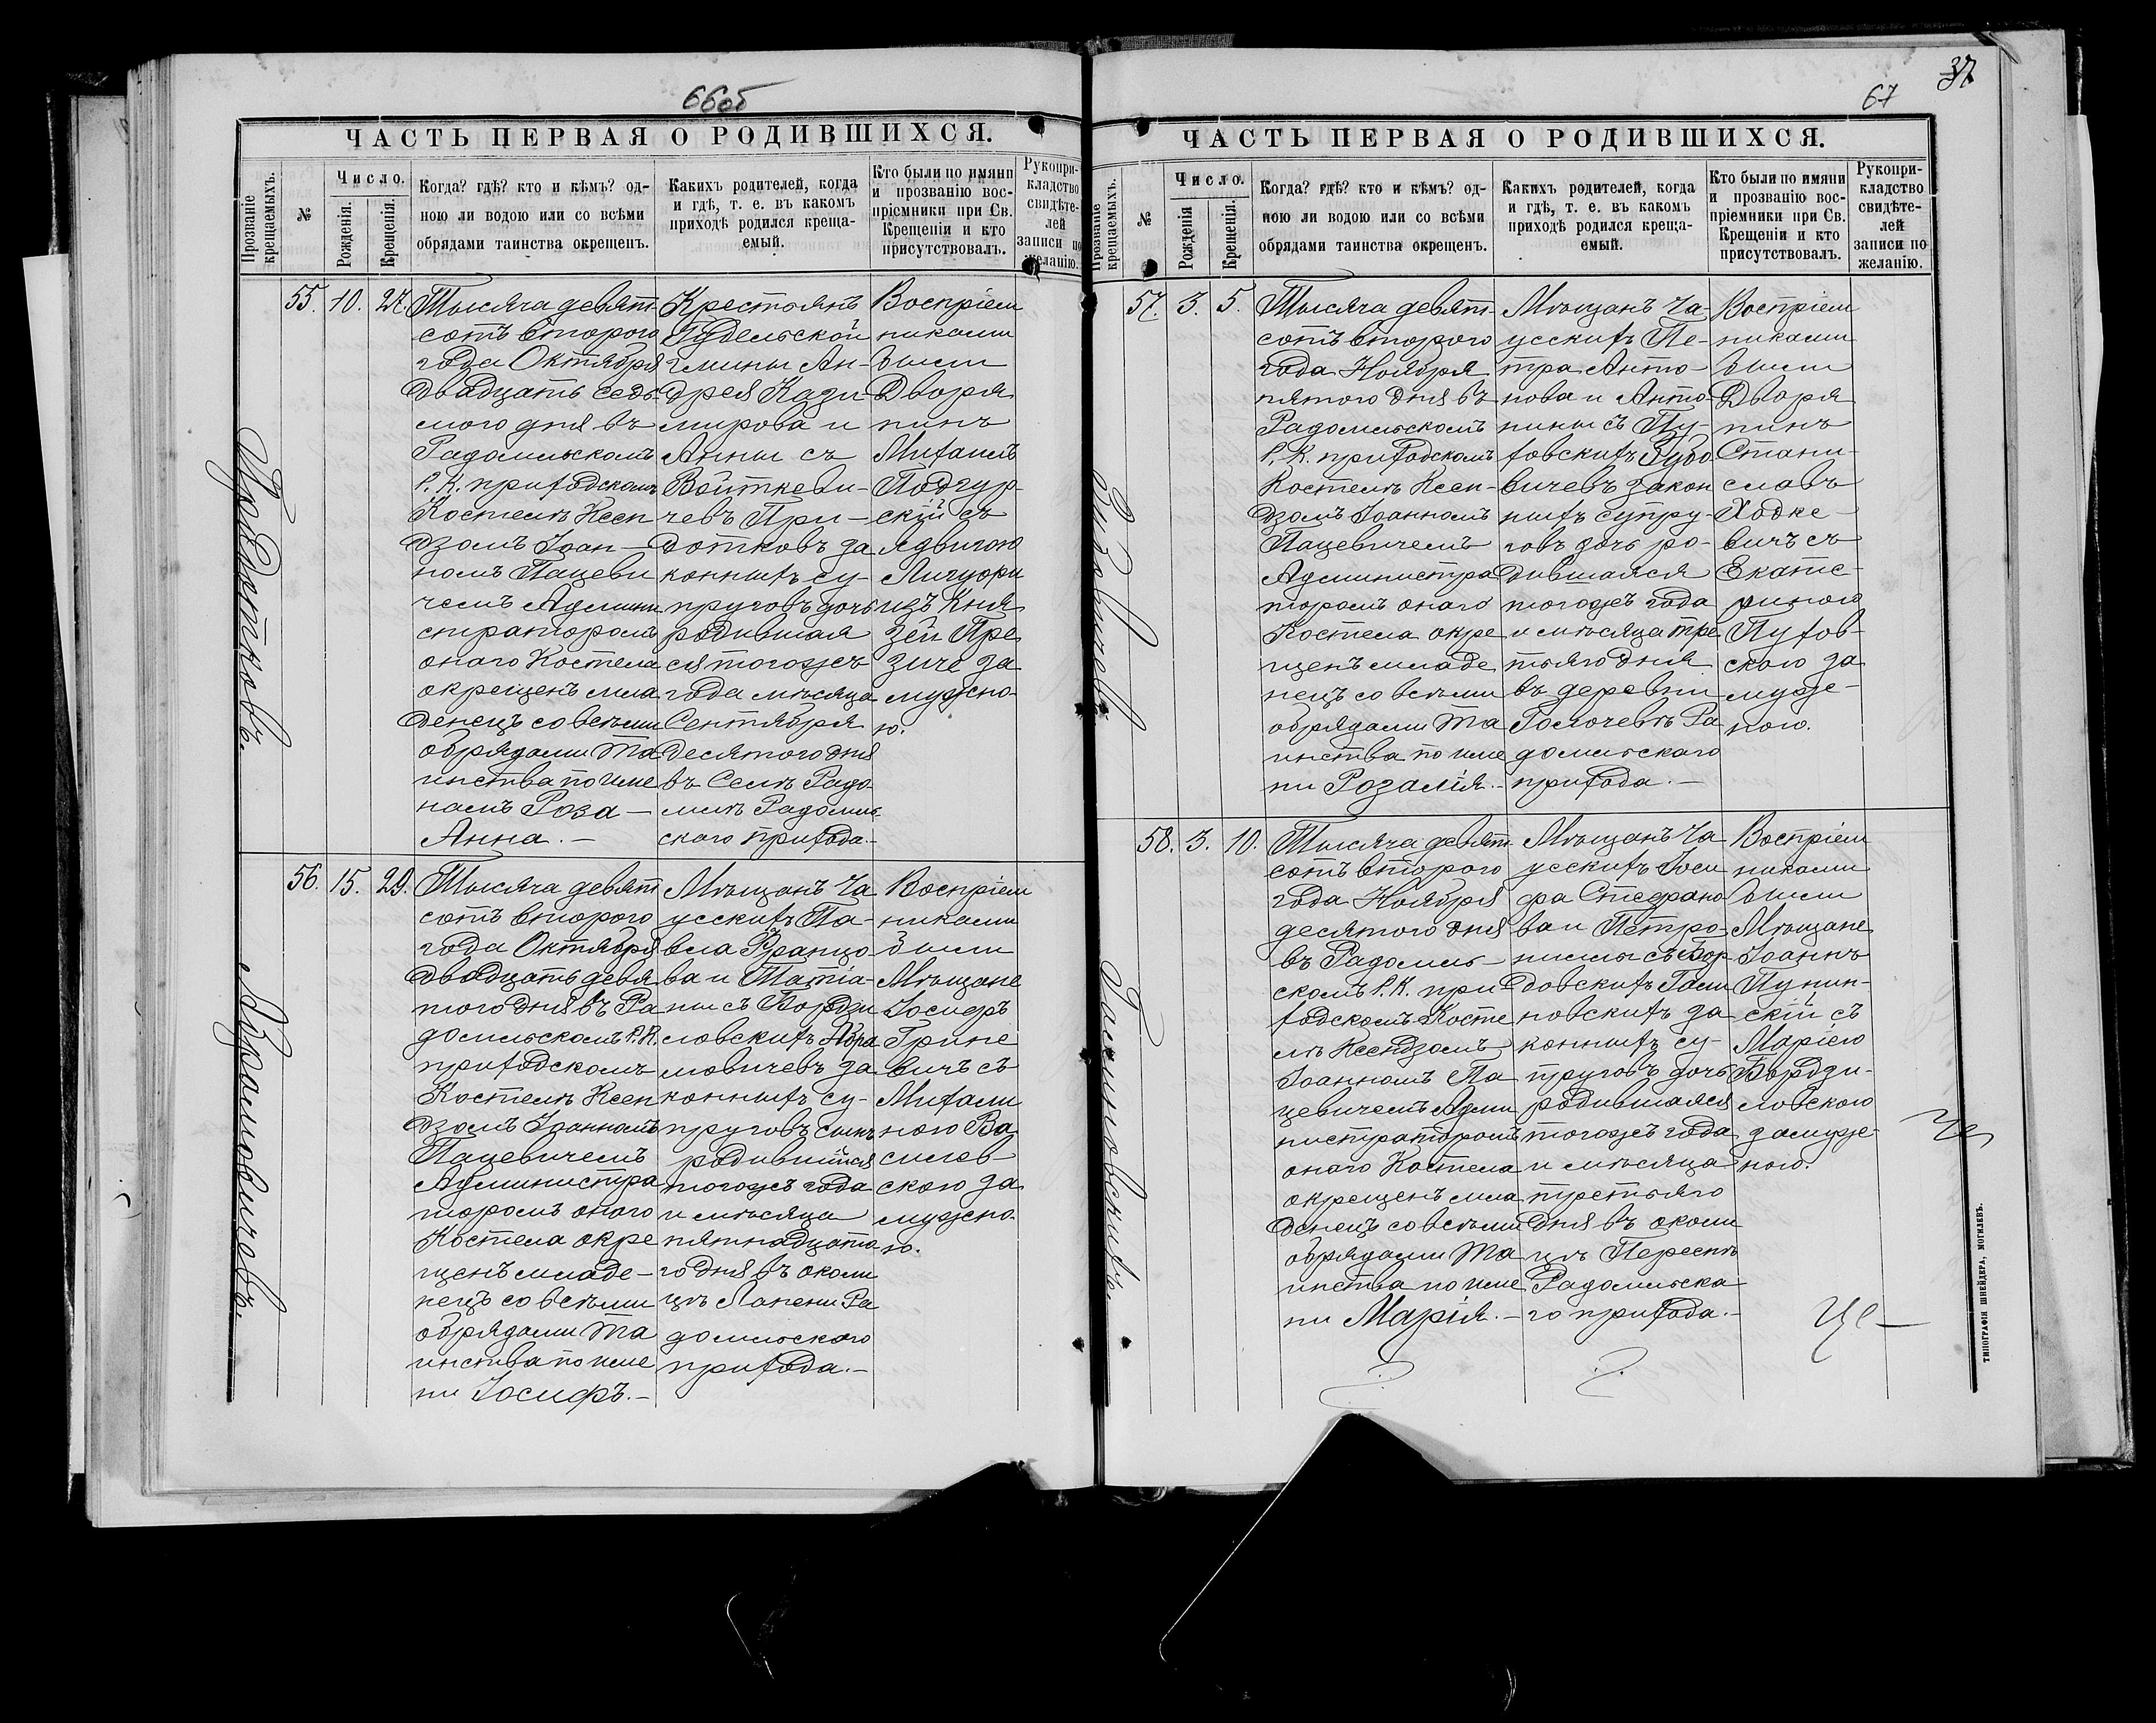 66об
ЧАСТЬ ПЕРВАЯ О РОДИВШИХСЯ.
Прозваніе крещаемыхъ.
№
Число.
Рожденія.
Крещенія.
Когда? гдѣ? кто и кѣмъ? од-
ною ли водою или со всѣми
обрядами таинства окрещенъ.
Какихъ родителей, когда
и гдѣ, т. е. въ какомъ
приходѣ родился креща-
емый.
Кто были по имяни
и прозванію вос-
пріемники при Св.
Крещеніи и кто
присутствовалъ.
Рукопри-
кладство
свидѣте-
лей
записи по
желанію.
55. 10. 27.
Тысяча девят
сотъ второго
года Октября
двадцать седь
мого дня въ
Радомльскомъ
Р. К. приходскомъ
Костелѣ Ксен
дзомъ Іоан-
номъ Пацеви
чемъ Админи
страторомъ
онаго Костела
окрещенъ мла
денецъ со всѣми
обрядами Та
инства по име
намъ Роза-
Анна.-
Крестьянъ
Гудельской
гмины Ан-
дрея Кази-
мирова и
Анны съ
Войткеви-
чевъ При-
дотковъ за
конныхъ су-
пруговъ дочь
родившая
ся тогожъ
года мѣсяца
Сентября
десятого дня
въ Селѣ Радо
млѣ Радомль
скаго прихода.-
Воспріем
никами
были
Дворя
нинъ
Михаилъ
Подгур-
скій съ
Ядвигою
Лигуори
изъ Кня
зей Пре
зиче за
мужно-
ю.
Придотковъ.
56. 15. 29.
Тысяча девят
сотъ второго
года Октября
двадцать девя
того дня въ Ра
домльскомъ Р. К.
приходскомъ
Костелѣ Ксен
дзомъ Іоанномъ
Пацевичемъ
Администра
торомъ оного
Костела окре
щенъ младе-
нецъ со всѣми
обрядами Та
инства по име
ни Іосифъ.-
Мѣщанъ Ча
усскихъ Па-
вла Францо-
ва и Татіа-
ны съ Бордзи
ловскихъ Абра
мовичевъ за
конныхъ су-
пруговъ сынъ
родившійся
тогожъ года
и мѣсяца
пятнадцато
го дня въ околи
цѣ Лапени Ра
домльскаго
прихода.-
Воспріем
никами
были
Мѣщане
Іосифъ
Грине
вичъ съ
Михали
ною Ва
силев-
скою за
мужно-
ю.
Абрамовичевъ.
67
37
ЧАСТЬ ПЕРВАЯ О РОДИВШИХСЯ.
Прозваніе крещаемыхъ.
№
Число.
Рожденія
Крещенія.
Когда? гдѣ? кто и кѣмъ? од-
ною ли водою или со всѣми
обрядами таинства окрещенъ.
Какихъ родителей, когда
и гдѣ, т. е. въ какомъ
приходѣ родился креща-
емый.
Кто были по имяни
и прозванію вос-
пріемники при Св.
Крещеніи и кто
присутствовалъ.
Рукопри-
кладство
свидѣте-
лей
записи по
желанію.
57. 3. 5.
Тысяча девят-
сотъ второго
года Ноября
пятого дня въ
Радомльскомъ
Р. К. приходскомъ
Костелѣ Ксен-
дзомъ Іоанномъ
Пацевичемъ
Администра
торомъ онаго
Костела окре
щенъ младе
нецъ со всѣми
обрядами Та
инства по име
ни Розалія.-
Мѣщанъ Ча-
усскихъ Пе-
тра Анто-
нова и Анто-
нины съ Пу-
ховскихъ Зубо
вичевъ закон
ныхъ супру-
говъ дочь ро-
дившаяся
тогожъ года
и мѣсяца тре
тьяго дня
въ деревни
Голочевѣ Ра
домльскаго
прихода.-
Воспріем
никами
были
Дворя
нинъ
Стани-
славъ
Ходке-
вичъ съ
Екате-
риною
Пухов-
скою за
муже-
ною.
Зубовичевъ.
58. 3. 10.
Тысяча девят
сотъ второго
года Ноября
десятого дня
въ Радомль-
скомъ Р. К. при
ходскомъ Косте
лѣ Ксендзомъ
Іоанномъ Па
цевичемъ Адми
нистраторомъ
онаго Костела
окрещенъ мла
денецъ со всѣми
обрядами Та
инства по име
ни Марія.-
Мѣщанъ Ча
усскихъ Іоси
фа Стефано
ва и Петро-
нилы съ Бор-
довскихъ Гали
новскихъ за
конныхъ су-
пруговъ дочь
родившаяся
тогожъ года
и мѣсяца
третьяго
дня въ околи
цѣ Пересѣть
Радомльска
го прихода.-
Воспріем
никами
были
Мѣщане
Іоаннъ
Пунин-
скій съ
Маріею
Бордзи-
ловскою
замуже-
ною.
ТИПОГРАФІЯ ШНЕЙДЕРА, МОГИЛЕВЪ.